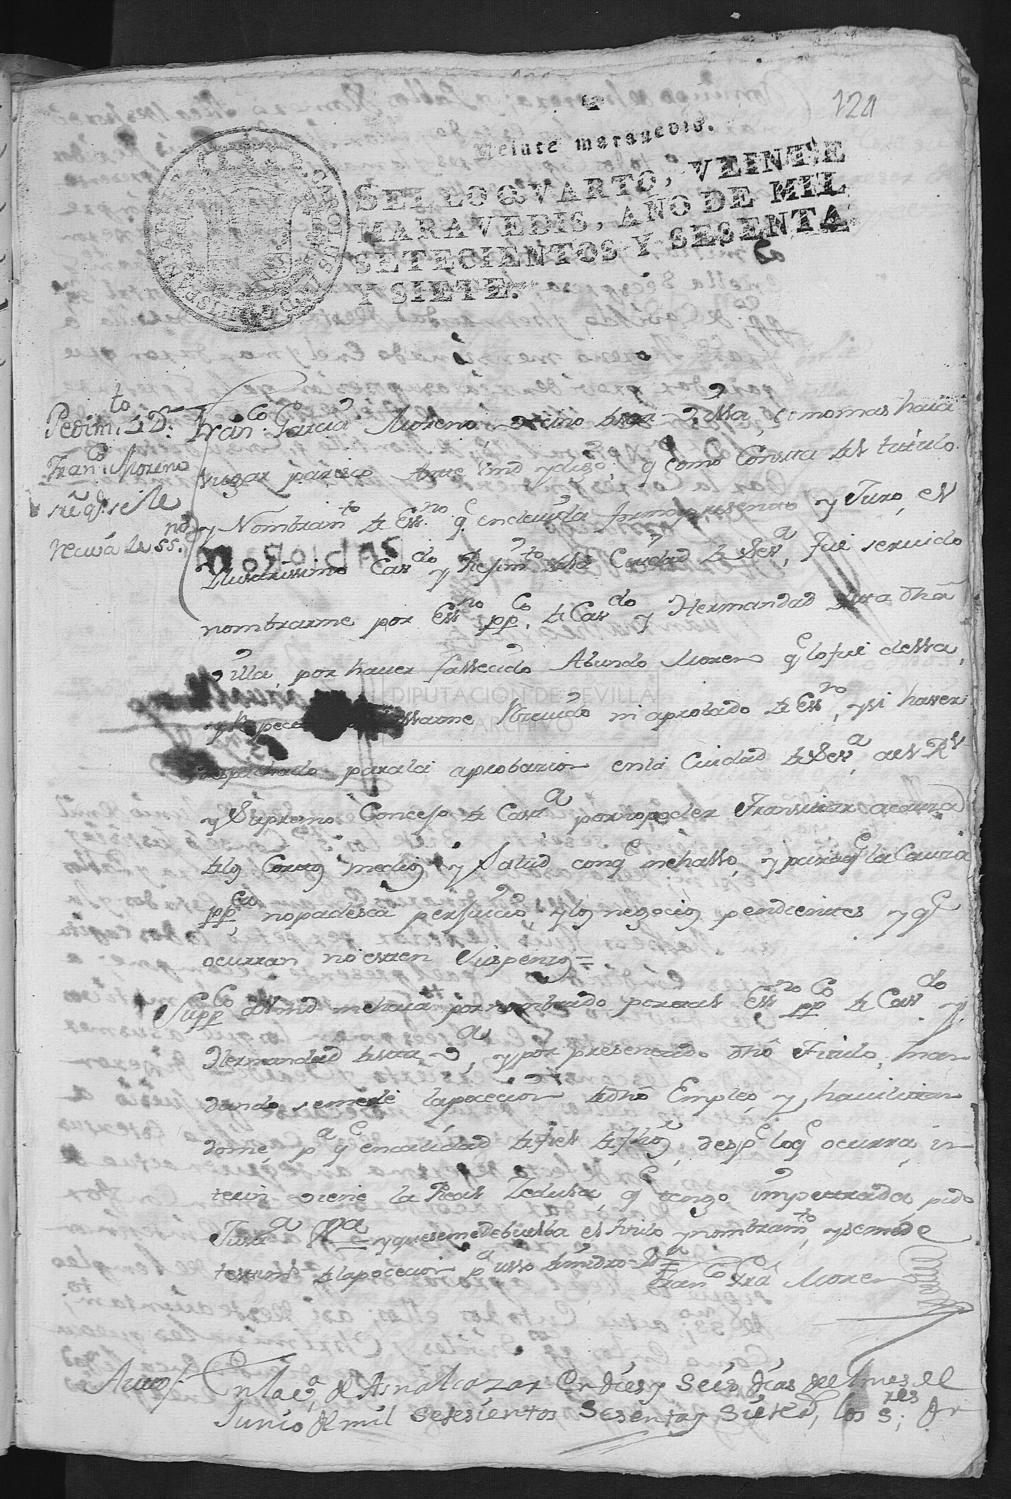 121
Veinte maravedis.
SELLO QVARTO, VEINTE
MARAVEDIS, AÑO DE MIL
SETECIENTOS Y SESENTA
Y SIETE.
Pedim.to de Dn.
Fran.co Moreno
Fran.co Garcia Moreno vezino desta Villa, como mas haia
lugar paresco ante Vmd y digo q como consta del titulo
y Nombram.to de Ess.no q en devida forma presento y Juro, el
Illustrissimo Cav.do y Rejim.to de la Ciudad de Sev.a, fue servido
nombrarme por Ess.no pp.co de Cav.do y Hermandad desta dha
Villa, por haver fallecido Abundo Moreno q lo fue della,
y Respecto hallarme Recivido ni aprobado de Ess.no, y si haver
despachado para la aprobazion en la Ciudad de Sev.a, al Rl
y Supremo Consejo de Cast.a por no poder transitar a causa
de los cortos medios y salud con q me hallo, y para q la Causa
pp.ca no padesca perjuicio y los negocios pendientes y q
ocurran no esten suspensos=
Supp.co a Vmd me haia por nombrado por tal Ess.no pp.co de Cav.do y
Hermandad desta V.a, y por presentado dho Titulo, man-
dando se me dé la posecion de dho Empleo, y havilitan-
dome p.a q en calidad de fiel de fhos, desp.e lo q ocurra, in-
terin viene la Real Zedula, q tengo impetrada pido
Just.a &.a y que se me debuelba el titulo y nombram.to, y se me de
testimo de la posecion p.a usso de mi dro=
Fran.co Gra Moreno
Auto,, En la v.a de Asnalcazar en dies y seis dias del mes de
Junio de mil setesientos sesenta y siete, los S.res, Dn
DIPUTACIÓN DE SEVILLA
ARCHIVO